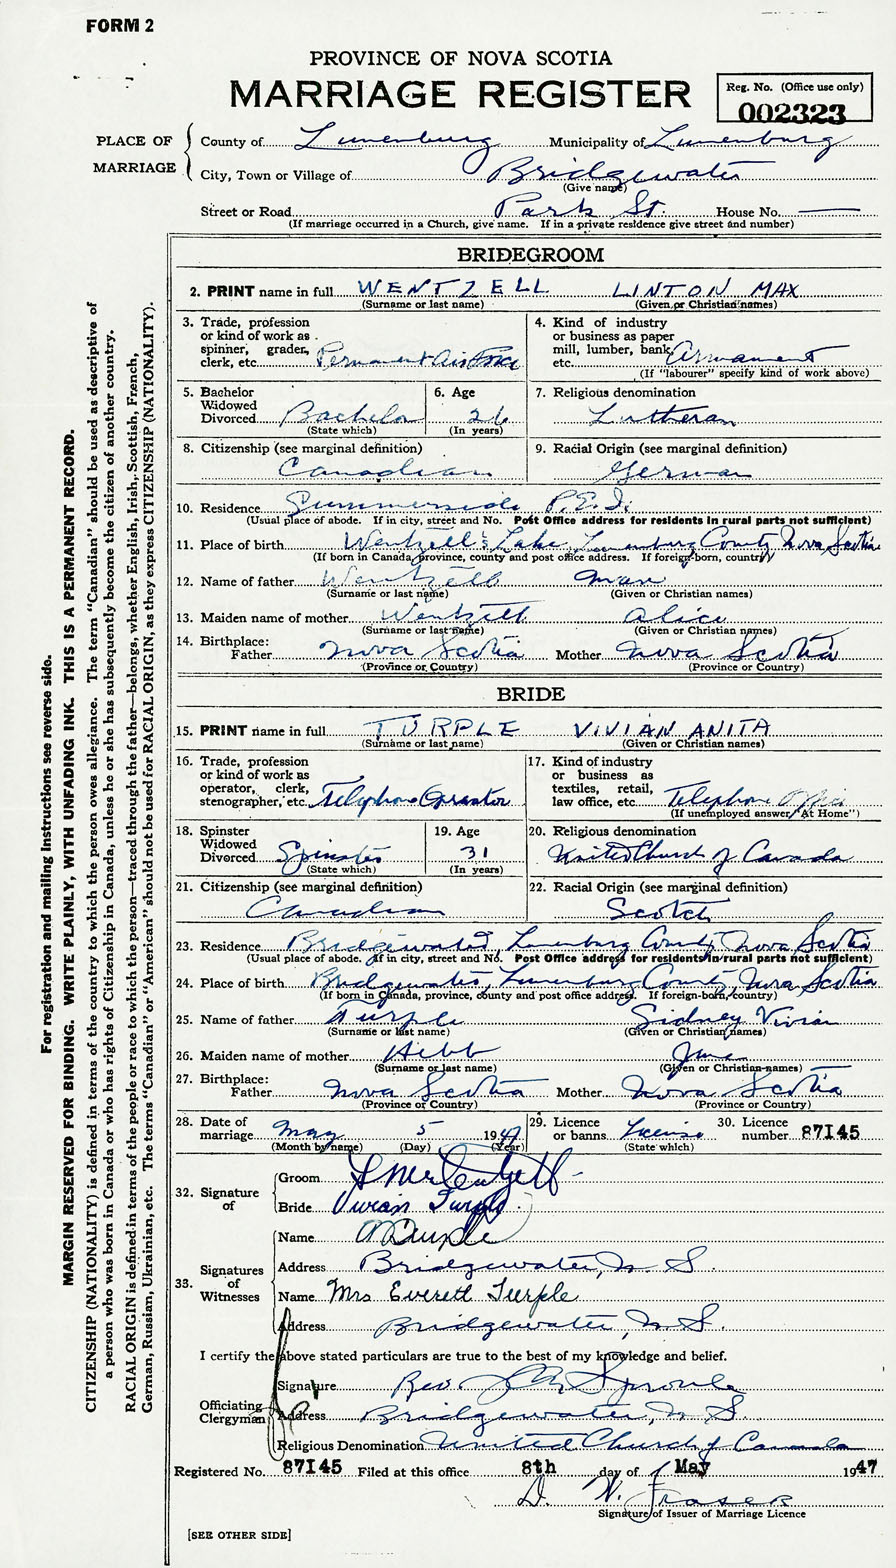 FORM 2
PROVINCE OF NOVA SCOTIA
MARRIAGE REGISTER
Reg. No. (Office use only)
002323
PLACE OF MARRIAGE
County of Lunenburg Municipality of Lunenburg
City, Town or Village of Bridgewater
(Give name)
Street or Road Park St. House No. —
(If marriage occurred in a Church, give name. If in a private residence give street and number)
BRIDEGROOM
2. PRINT name in full WENTZELL LINTON MAX
(Surname or last name) (Given or Christian names)
3. Trade, profession or kind of work as spinner, grader, clerk, etc. Permanent Air Force
4. Kind of industry or business as paper mill, lumber, bank, etc. Armament
(If "labourer" specify kind of work above)
5. Bachelor Widowed Divorced Bachelor
(State which)
6. Age 26
(In years)
7. Religious denomination
Lutheran
8. Citizenship (see marginal definition)
Canadian
9. Racial Origin (see marginal definition)
German
10. Residence Summerside P.E.I.
(Usual place of abode. If in city, street and No. Post Office address for residents in rural parts not sufficient)
11. Place of birth Wentzell's Lake, Lunenburg County, Nova Scotia
(If born in Canada, province, county and post office address. If foreign-born, country)
12. Name of father Wentzell Max
(Surname or last name) (Given or Christian names)
13. Maiden name of mother Wentzell Alice
(Surname or last name) (Given or Christian names)
14. Birthplace:
Father Nova Scotia Mother Nova Scotia
(Province or Country) (Province or Country)
BRIDE
15. PRINT name in full TURPLE VIVIAN ANITA
(Surname or last name) (Given or Christian names)
16. Trade, profession or kind of work as operator, clerk, stenographer, etc. Telephone Operator
17. Kind of industry or business as textiles, retail, law office, etc. Telephone Office
(If unemployed answer "At Home")
18. Spinster Widowed Divorced Spinster
(State which)
19. Age 31
(In years)
20. Religious denomination
United Church of Canada
21. Citizenship (see marginal definition)
Canadian
22. Racial Origin (see marginal definition)
Scotch
23. Residence Bridgewater, Lunenburg County, Nova Scotia
(Usual place of abode. If in city, street and No. Post Office address for residents in rural parts not sufficient)
24. Place of birth Bridgewater, Lunenburg County, Nova Scotia
(If born in Canada, province, county and post office address. If foreign-born, country)
25. Name of father Turple Sidney Vivian
(Surname or last name) (Given or Christian names)
26. Maiden name of mother Hebb Jane
(Surname or last name) (Given or Christian names)
27. Birthplace:
Father Nova Scotia Mother Nova Scotia
(Province or Country) (Province or Country)
28. Date of marriage May 5 1947
(Month by name) (Day) (Year)
29. Licence or banns License
(State which)
30. Licence number 87I45
32. Signature of
Groom L M Wentzell
Bride Vivian Turple
33. Signatures of Witnesses
Name Turple
Address Bridgewater, N. S.
Name Mrs Everett Turple
Address Bridgewater, N. S.
I certify the above stated particulars are true to the best of my knowledge and belief.
Officiating Clergyman
Signature Rev. Sproule
Address Bridgewater, N. S.
Religious Denomination United Church of Canada
Registered No. 87I45 Filed at this office 8th day of May 1947
D. W. Fraser
Signature of Issuer of Marriage Licence
[SEE OTHER SIDE]
For registration and mailing instructions see reverse side.
MARGIN RESERVED FOR BINDING. WRITE PLAINLY, WITH UNFADING INK. THIS IS A PERMANENT RECORD.
CITIZENSHIP (NATIONALITY) is defined in terms of the country to which the person owes allegiance. The term "Canadian" should be used as descriptive of
a person who was born in Canada or who has rights of Citizenship in Canada, unless he or she has subsequently become the citizen of another country.
RACIAL ORIGIN is defined in terms of the people or race to which the person—traced through the father—belongs, whether English, Irish, Scottish, French,
German, Russian, Ukrainian, etc. The terms "Canadian" or "American" should not be used for RACIAL ORIGIN, as they express CITIZENSHIP (NATIONALITY).